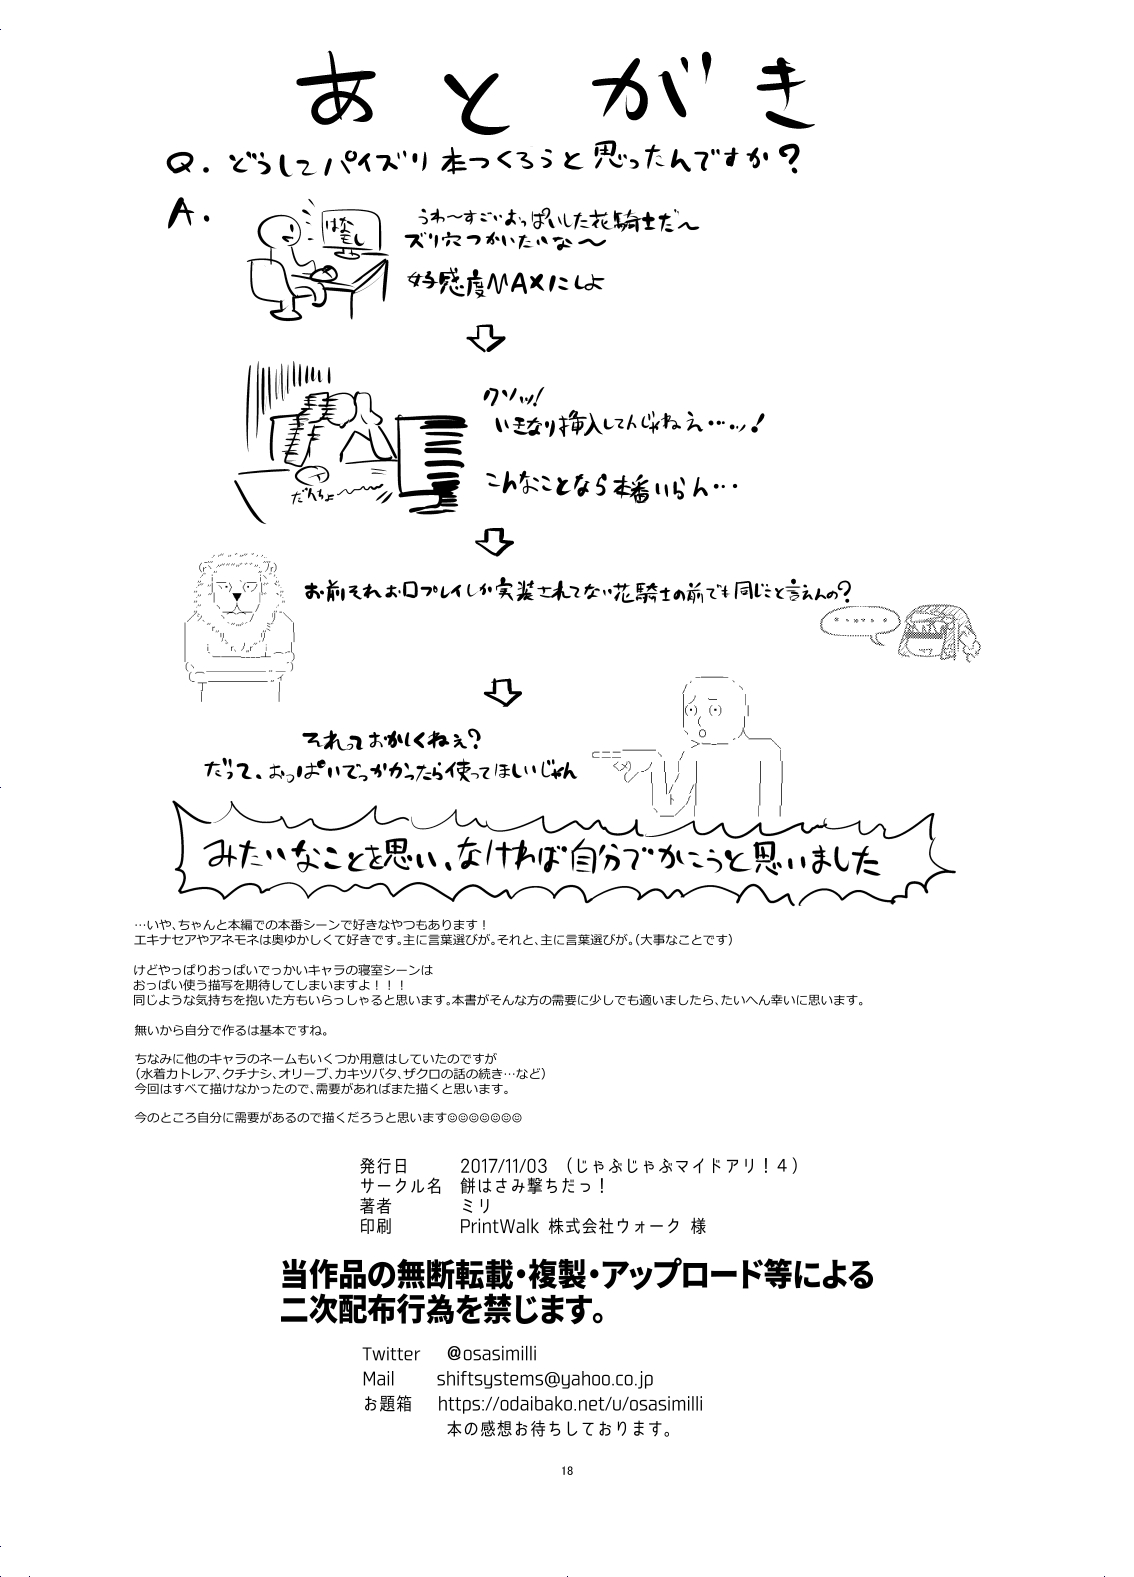 あとがき
Q. どうしてパイズリ本つくろうと思ったんですか?
A.
はな
もし
うわ～すごいおっぱいした花騎士だ～
ズリ穴つかいたいな～
好感度MAXにしよ
クソッ!
いきなり挿入してんじゃねえ…ッ!
だんちょ～～
こんなことなら本番いらん…
お前それお口プレイしか実装されてない花騎士の前でも同じこと言えんの?
それっておかしくねぇ?
だって、おっぱいでっかかったら使ってほしいじゃん
みたいなことを思い、なければ自分でかこうと思いました
…いや、ちゃんと本編での本番シーンで好きなやつもあります！
エキナセアやアネモネは奥ゆかしくて好きです。主に言葉選びが。それと、主に言葉選びが。（大事なことです）
けどやっぱりおっぱいでっかいキャラの寝室シーンは
おっぱい使う描写を期待してしまいますよ！！！
同じような気持ちを抱いた方もいらっしゃると思います。本書がそんな方の需要に少しでも適いましたら、たいへん幸いに思います。
無いから自分で作るは基本ですね。
ちなみに他のキャラのネームもいくつか用意はしていたのですが
（水着カトレア、クチナシ、オリーブ、カキツバタ、ザクロの話の続き…など）
今回はすべて描けなかったので、需要があればまた描くと思います。
今のところ自分に需要があるので描くだろうと思います☺☺☺☺☺☺☺
発行日 2017/11/03 （じゃぶじゃぶマイドアリ！４）
サークル名 餅はさみ撃ちだっ！
著者 ミリ
印刷 PrintWalk 株式会社ウォーク 様
当作品の無断転載・複製・アップロード等による
二次配布行為を禁じます。
Twitter @osasimilli
Mail shiftsystems@yahoo.co.jp
お題箱 https://odaibako.net/u/osasimilli
本の感想お待ちしております。
18